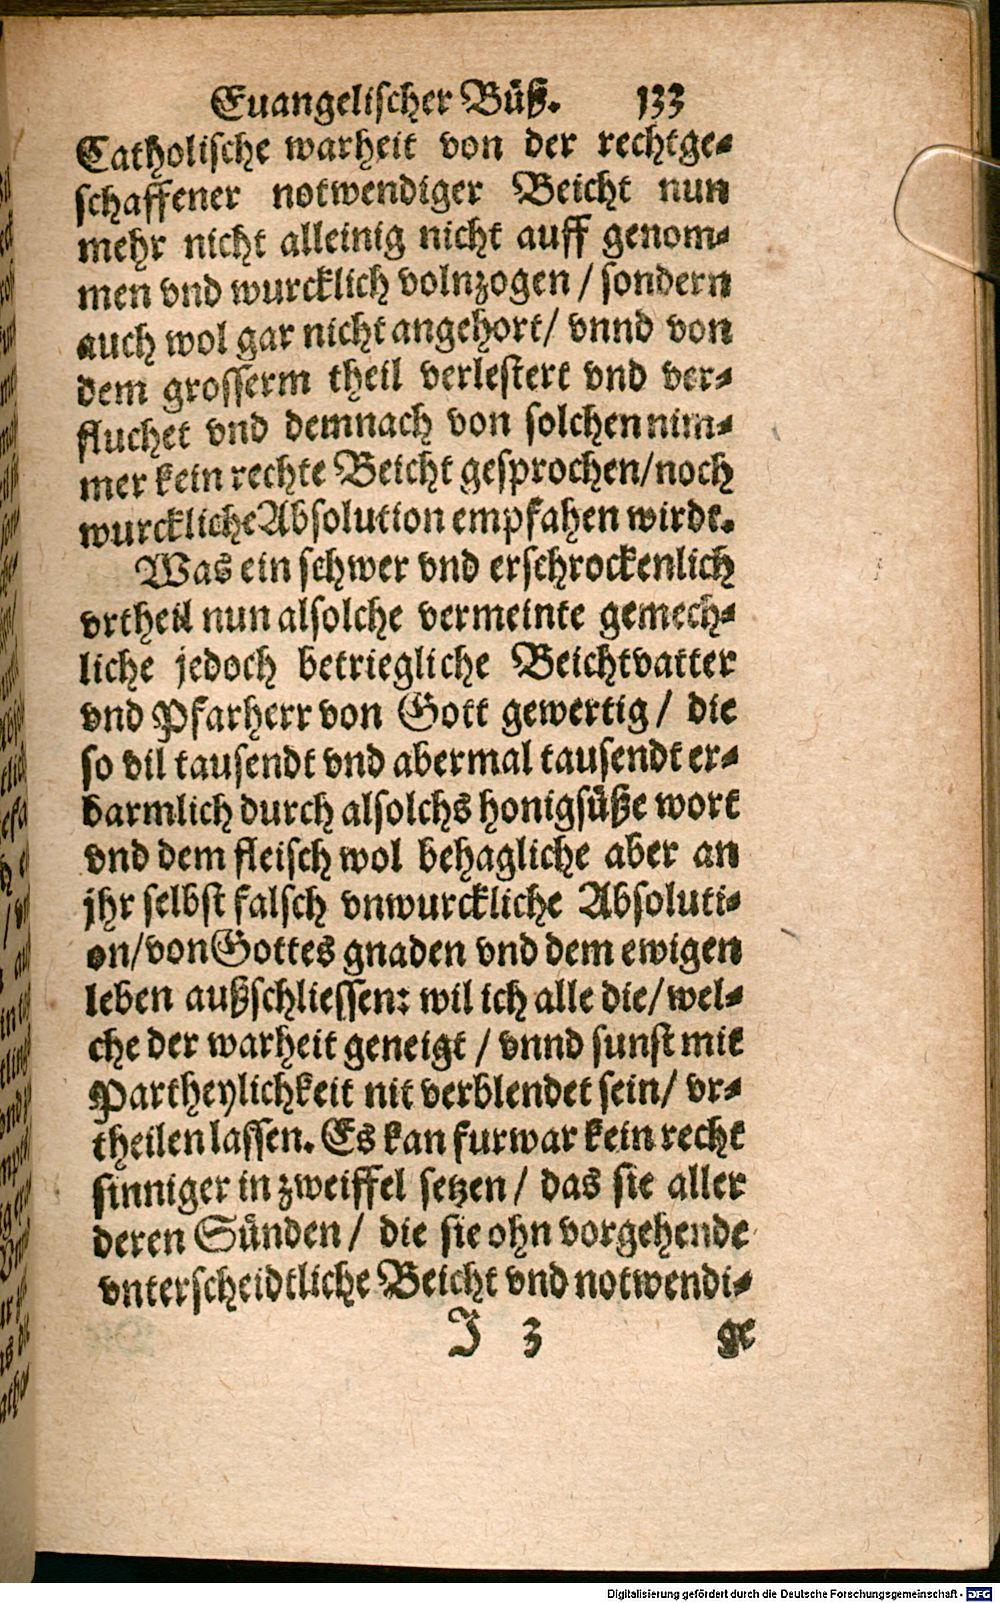 Euangelischer Büß. 133
Catholische warheit von der rechtge-
schaffener notwendiger Beicht nun
mehr nicht alleinig nicht auff genom-
men vnd wurcklich volnzogen / sondern
auch wol gar nicht angehort / vnnd von
dem grosserm theil verlestert vnd ver-
fluchet vnd demnach von solchen nim-
mer kein rechte Beicht gesprochen / noch
wurckliche Absolution empfahen wirdt.
Was ein schwer vnd erschrockenlich
vrtheil nun alsolche vermeinte gemech-
liche jedoch betriegliche Beichtvatter
vnd Pfarherr von Gott gewertig / die
so vil tausendt vnd abermal tausendt er-
barmlich durch alsolchs honigsüße wort
vnd dem fleisch wol behagliche aber an
jhr selbst falsch vnwurckliche Absoluti-
on / von Gottes gnaden vnd dem ewigen
leben außschliessen: wil ich alle die / wel-
che der warheit geneigt / vnnd sunst mit
Partheylichkeit nit verblendet sein / vr-
theilen lassen. Es kan furwar kein recht
sinniger in zweiffel setzen / das sie aller
deren Sünden / die sie ohn vorgehende
vnterscheidtliche Beicht vnd notwendi-
J 3 ge
Digitalisierung gefördert durch die Deutsche Forschungsgemeinschaft - DFG